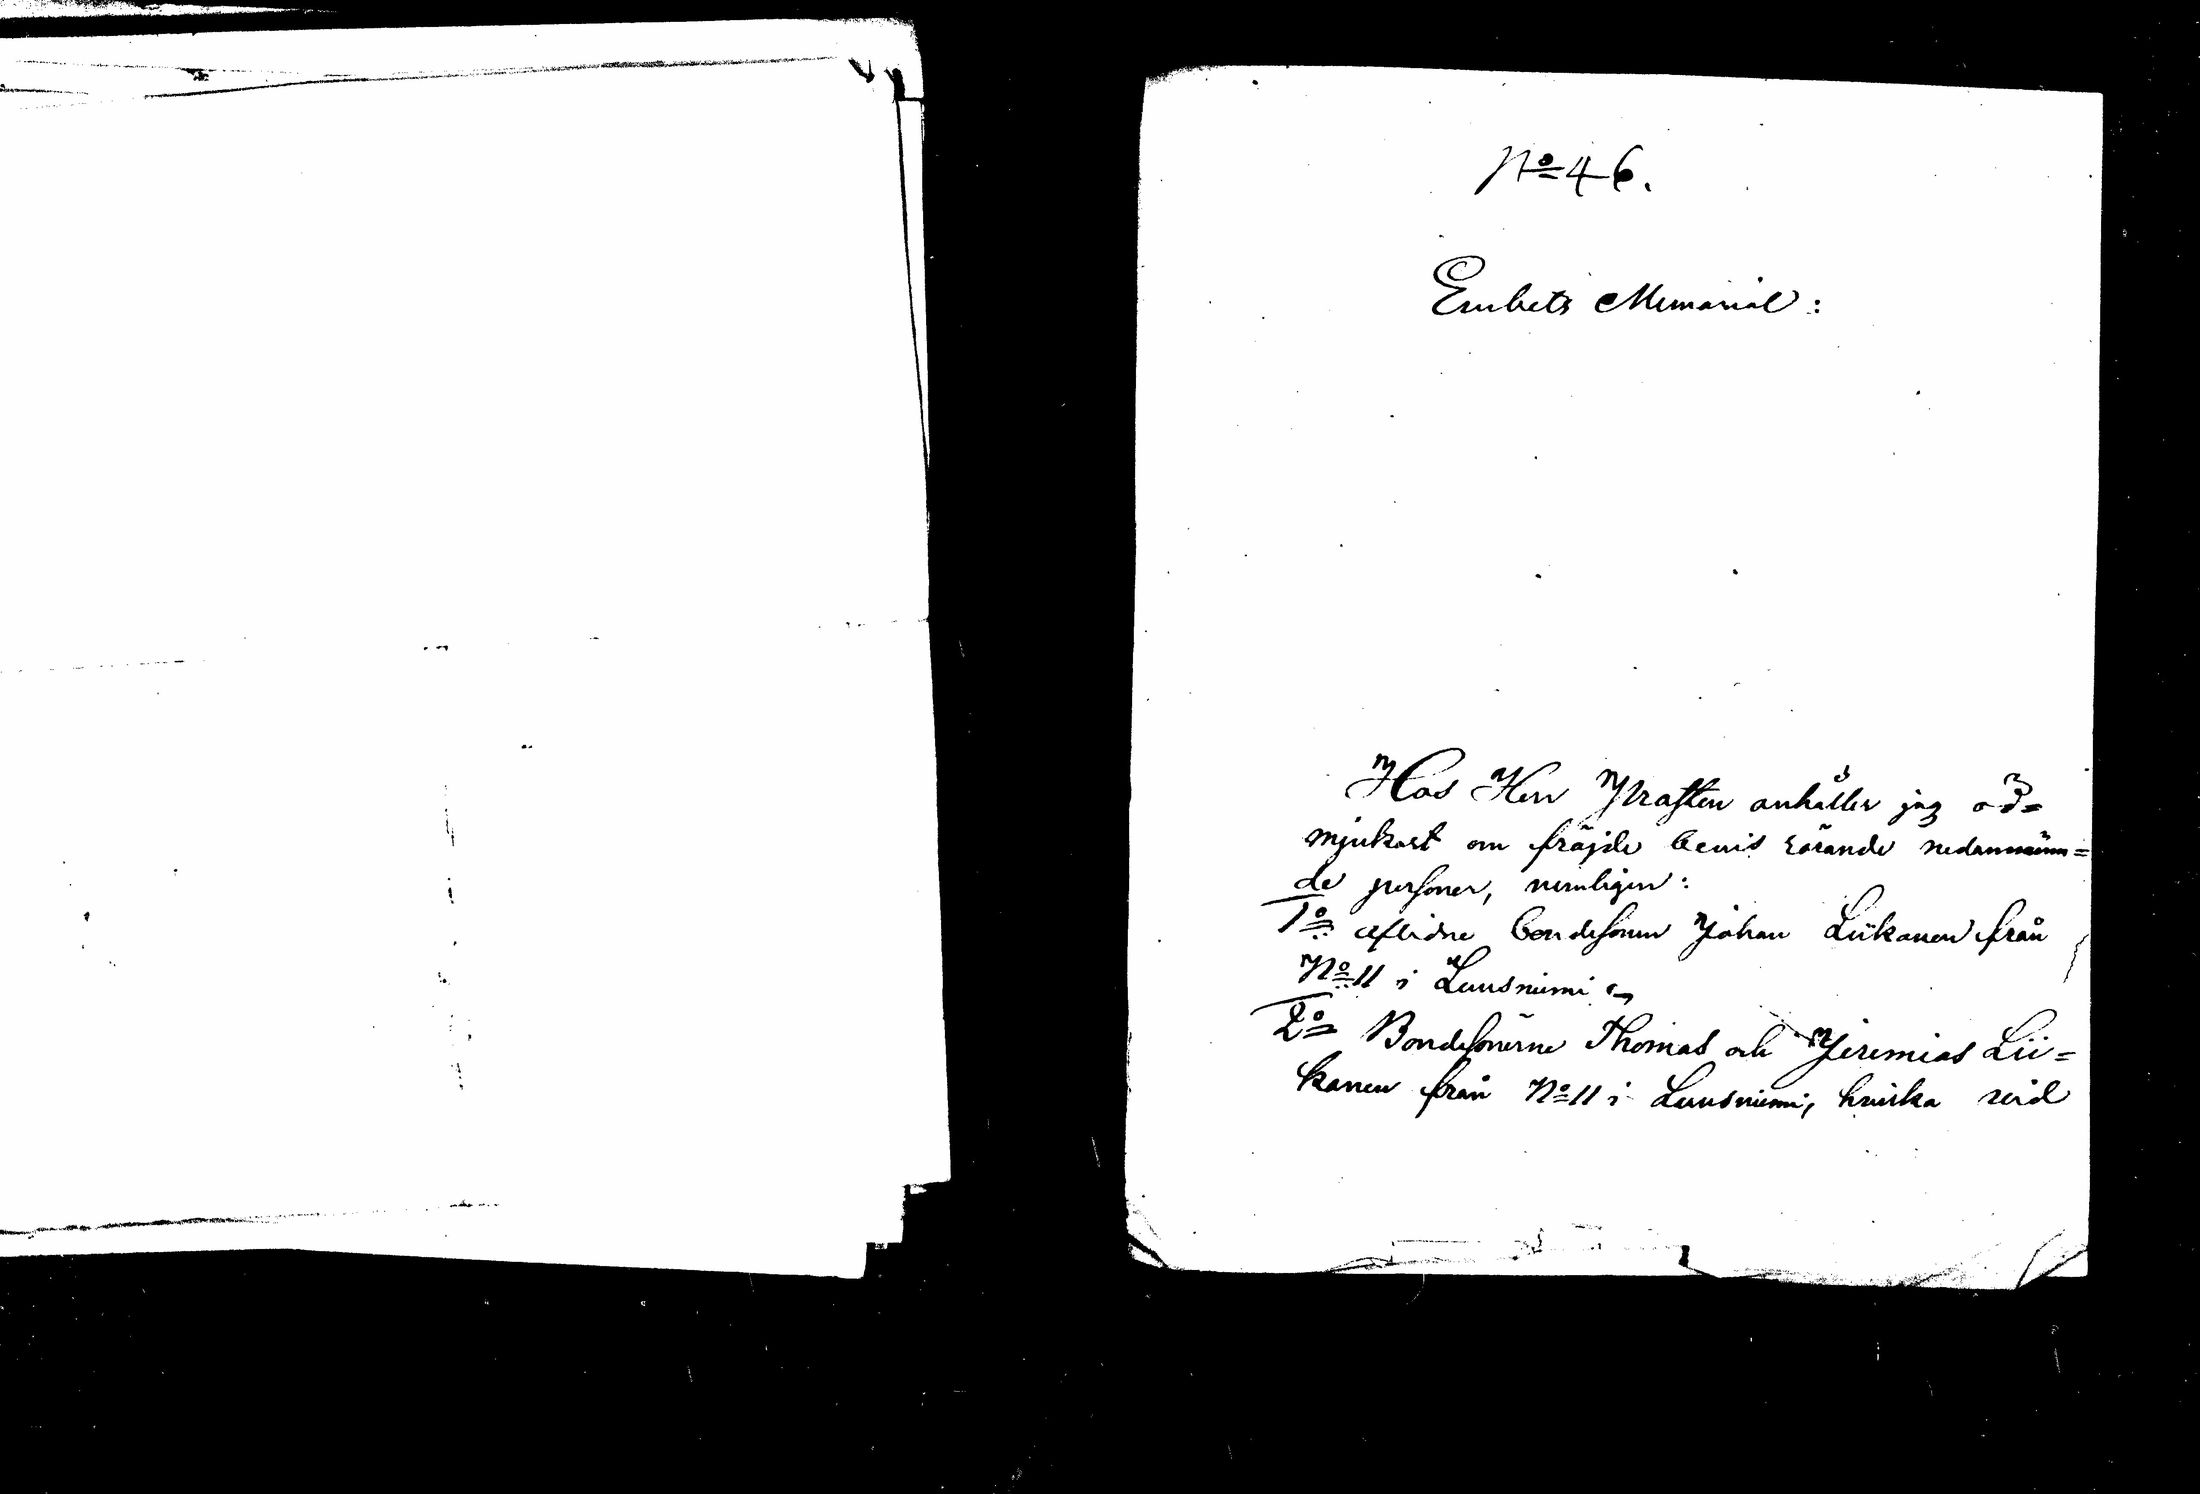 No 46.
Embets Memorial:
Hos Herr Prosten anhåller jag öd=
mjukast om fräjde bevis rörande nedannämn=
de personer, nemligen:
1o aflidne bondesonen Johan Liikanen från
No 11 i Luusniemi
2o Bondesönerne Thomas och Jeremias Lii=
kanen från No 11 i Luusniemi, hvilka vid